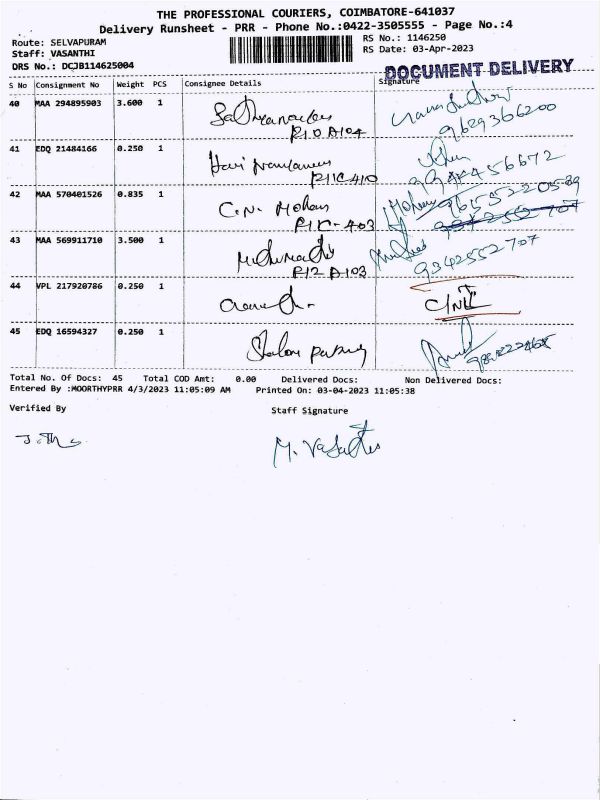 THE PROFESSIONAL COURIERS, COIMBATORE-641037
Delivery Runsheet - PRR - Phone No.:0422-3505555 - Page No.:4
Route: SELVAPURAM RS No.: 1146250
Staff: VASANTHI RS Date: 03-Apr-2023
DRS No.: DCJB114625004
DOCUMENT DELIVERY
S No Consignment No Weight PCS Consignee Details Signature
40 MAA 294895903 3.600 1
R10 A104 9629366200
41 EDQ 21484166 0.250 1
R11C-410
42 MAA 570401526 0.835 1 C.N. Mohan Mohan
R1C-403
43 MAA 569911710 3.500 1
R12 A103 9342552707
44 VPL 217920786 0.250 1
45 EDQ 16594327 0.250 1
Total No. Of Docs: 45 Total COD Amt: 0.00 Delivered Docs: Non Delivered Docs:
Entered By :MOORTHYPRR 4/3/2023 11:05:09 AM Printed On: 03-04-2023 11:05:38
Verified By Staff Signature